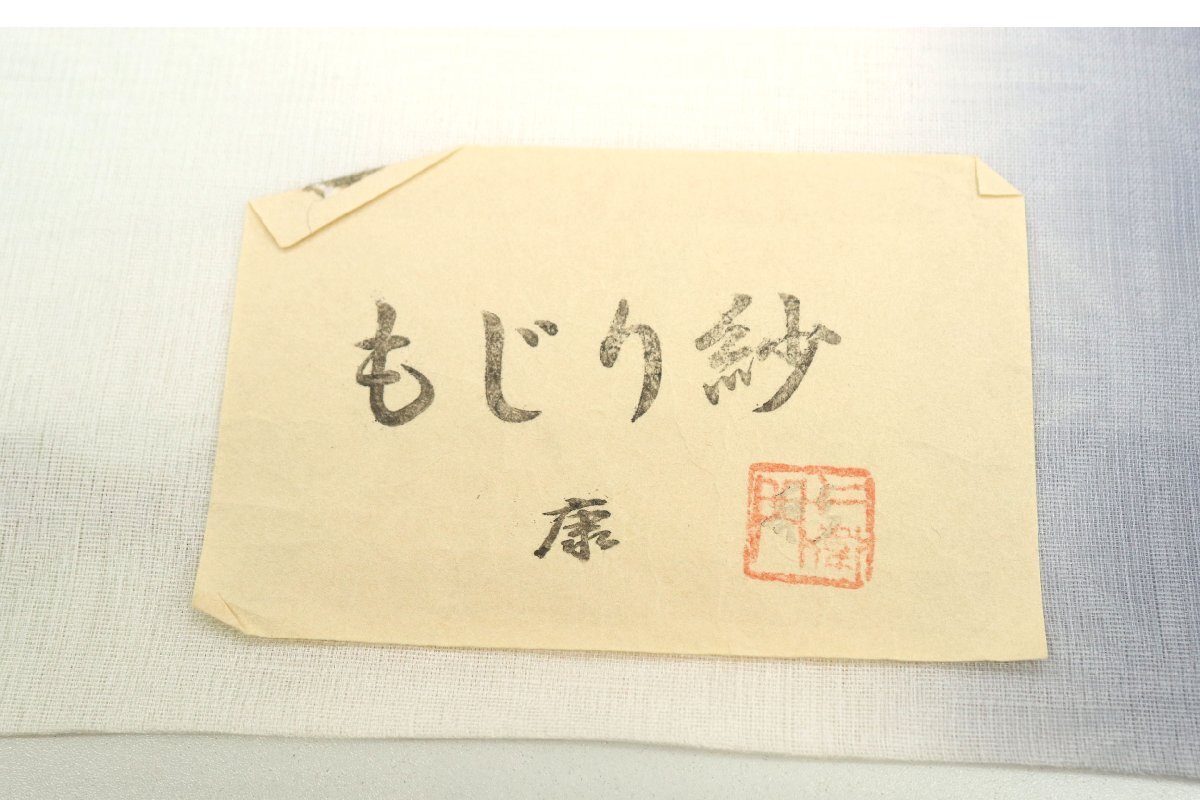 もじり紗
康